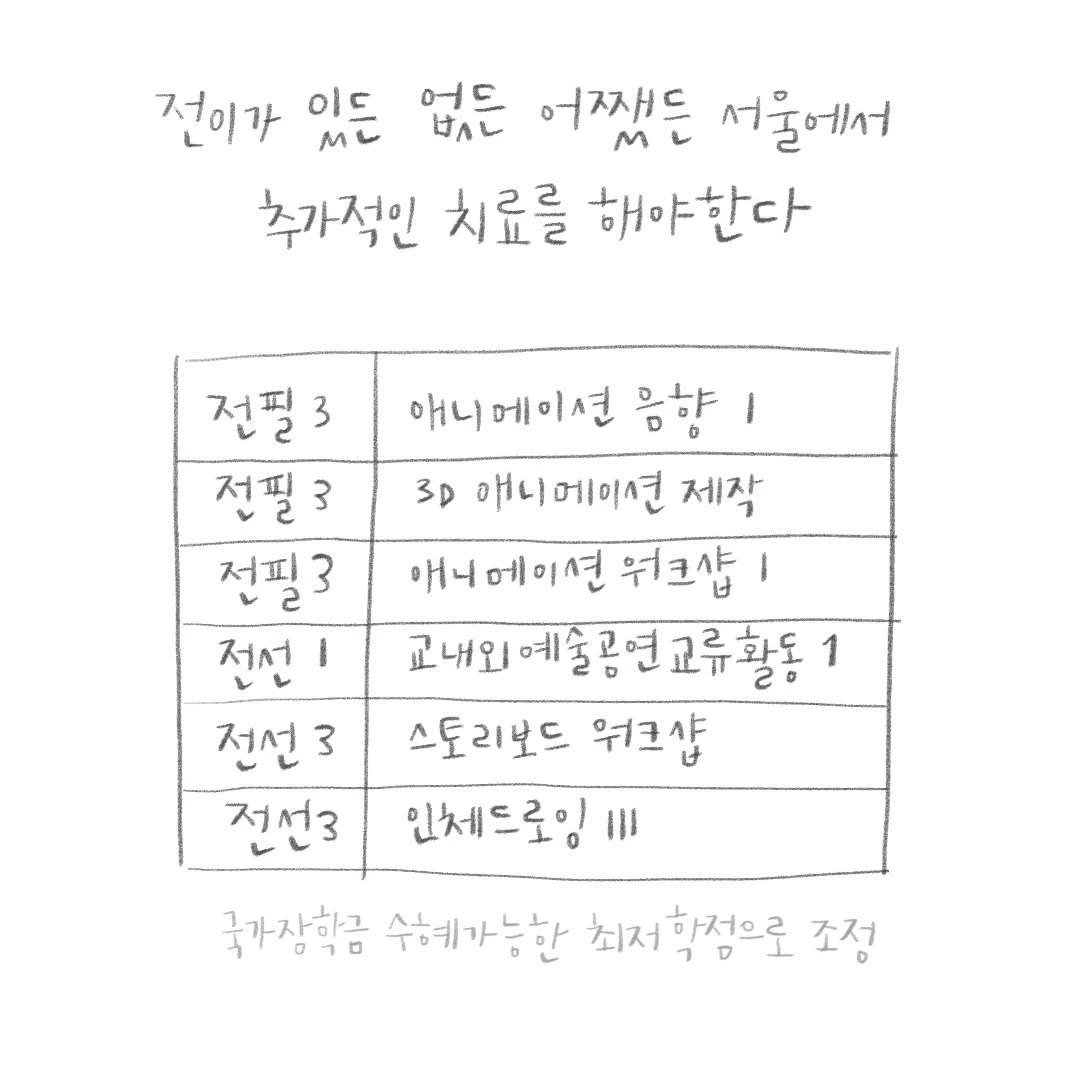 전이가 있든 없든 어쨌든 서울에서
추가적인 치료를 해야한다
전필 3 애니메이션 음향 1
전필 3 3D 애니메이션 제작
전필 3 애니메이션 워크샵 1
전선 1 교내외예술공연교류활동 1
전선 3 스토리보드 워크샵
전선 3 인체드로잉 III
국가장학금 수혜가능한 최저학점으로 조정